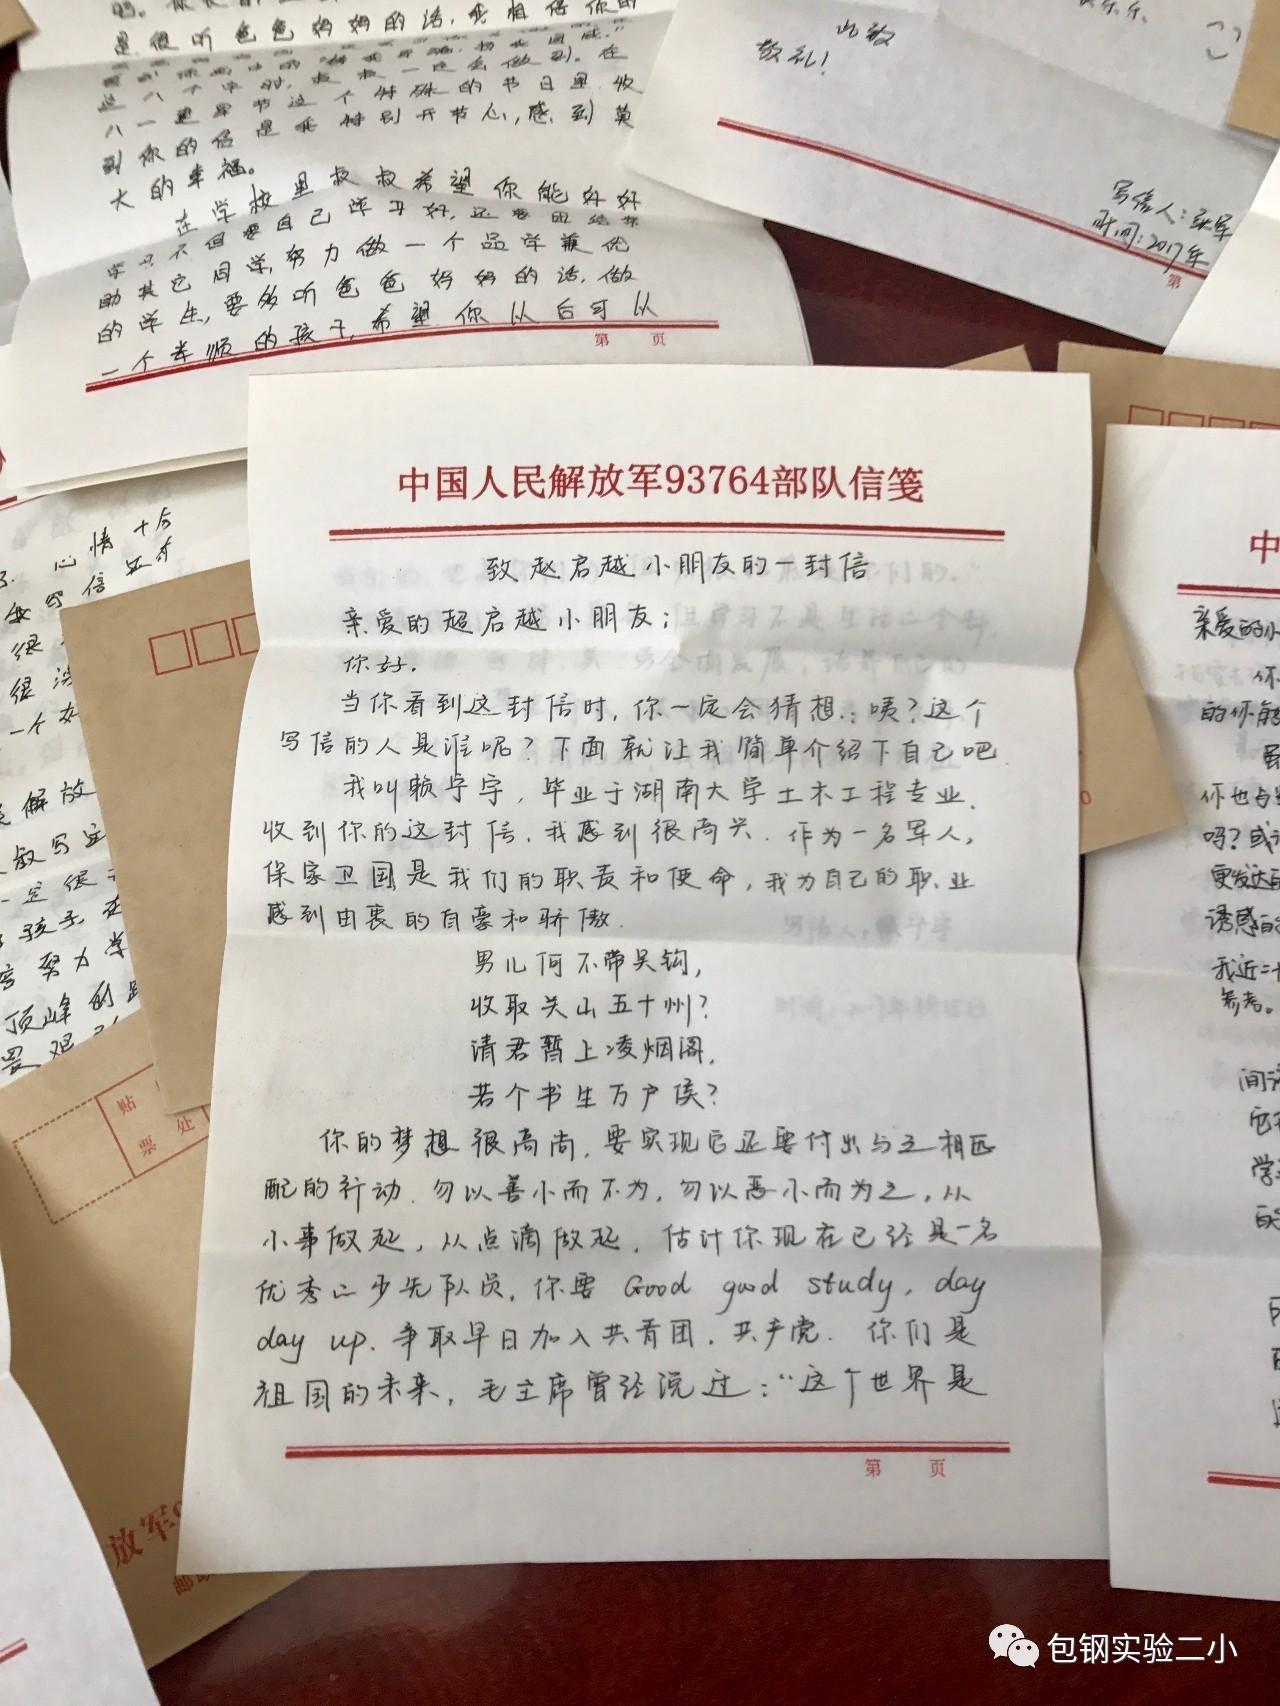 是很听爸爸妈妈的话,我相信你的
八一建军节这个特殊的节日里收
到你的信是我特别开心,感到莫
大的幸福。
在学校里叔叔希望你能好好
助其它同学,努力做一个品学兼优
的学生,要多听爸爸妈妈的话,做
一个孝顺的孩子,希望你从后可以
第 页
此致
敬礼!
写信人:
时间:2017年
第
中国人民解放军93764部队信笺
致赵启越小朋友的一封信
亲爱的超启越小朋友;
你好.
当你看到这封信时,你一定会猜想:咦?这个
写信的人是谁呢?下面就让我简单介绍下自己吧
我叫赖宇宇,毕业于湖南大学土木工程专业.
收到你的这封信,我感到很高兴.作为一名军人,
保家卫国是我们的职责和使命,我为自己的职业
感到由衷的自豪和骄傲.
男儿何不带吴钩,
收取关山五十州?
请君暂上凌烟阁,
若个书生万户侯?
你的梦想很高尚,要实现它还要付出与之相匹
配的行动.勿以善小而不为,勿以恶小而为之,从
小事做起,从点滴做起,估计你现在已经是一名
优秀的少先队员,你要 Good good study, day
day up.争取早日加入共青团,共产党.你们是
祖国的未来,毛主席曾经说过:“这个世界是
第 页
心情十分
解放
努力学
顶峰的
贴
票
处
放军
中
亲爱的小
的你能
你也与
吗?或
更发达
诱惑的
我近二十
参考。
包钢实验二小